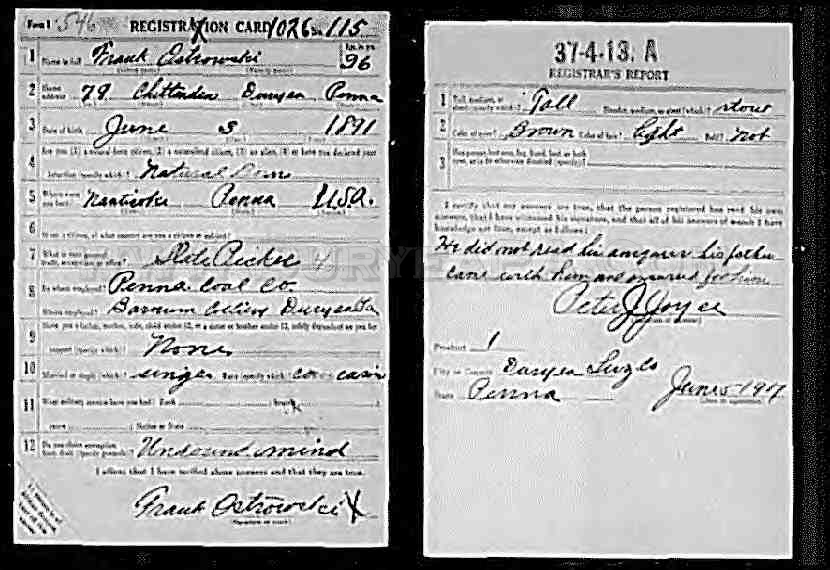 Form 1 546 REGISTRATION CARD 1026 No. 115
1 Name in full Frank Ostrowski Age, in yrs. 26
(Given name) (Family name)
2 Home address 79 Chittenden Duryea Penna
3 Date of birth June 3 1891
4 Are you (1) a natural-born citizen, (2) a naturalized citizen, (3) an alien, (4) or have you declared your
intention (specify which)? Natural Born
5 Where were you born? Nanticoke Penna U.S.A.
6 If not a citizen, of what country are you a citizen or subject?
7 What is your present trade, occupation, or office? Slate Picker
8 By whom employed? Penna Coal Co.
Where employed? Barnum Colliery Duryea Pa
9 Have you a father, mother, wife, child under 12, or a sister or brother under 12, solely dependent on you for
support (specify which)? None
10 Married or single (which)? single Race (specify which)?
11 What military service have you had? Rank branch
years Nation or State
12 Do you claim exemption from draft (specify grounds)? Unsound mind
I affirm that I have verified above answers and that they are true.
Frank Ostrowski X
(Signature or mark)
37-4-13. A
REGISTRAR'S REPORT
1 Tall, medium, or short (specify which)? Tall Slender, medium, or stout (which)? stout
2 Color of eyes? Brown Color of hair? light Bald? not
3 Has person lost arm, leg, hand, foot, or both
eyes, or is he otherwise disabled (specify)?
I certify that my answers are true, that the person registered has read his own
answers, that I have witnessed his signature, and that all of his answers of which I have
knowledge are true, except as follows:
He did not read his answers his father
came with him and answered for him
Peter J Joyce
(Signature of registrar)
Precinct 1
City or County Duryea Luz Co
State Penna June 5 1917
(Date of registration)